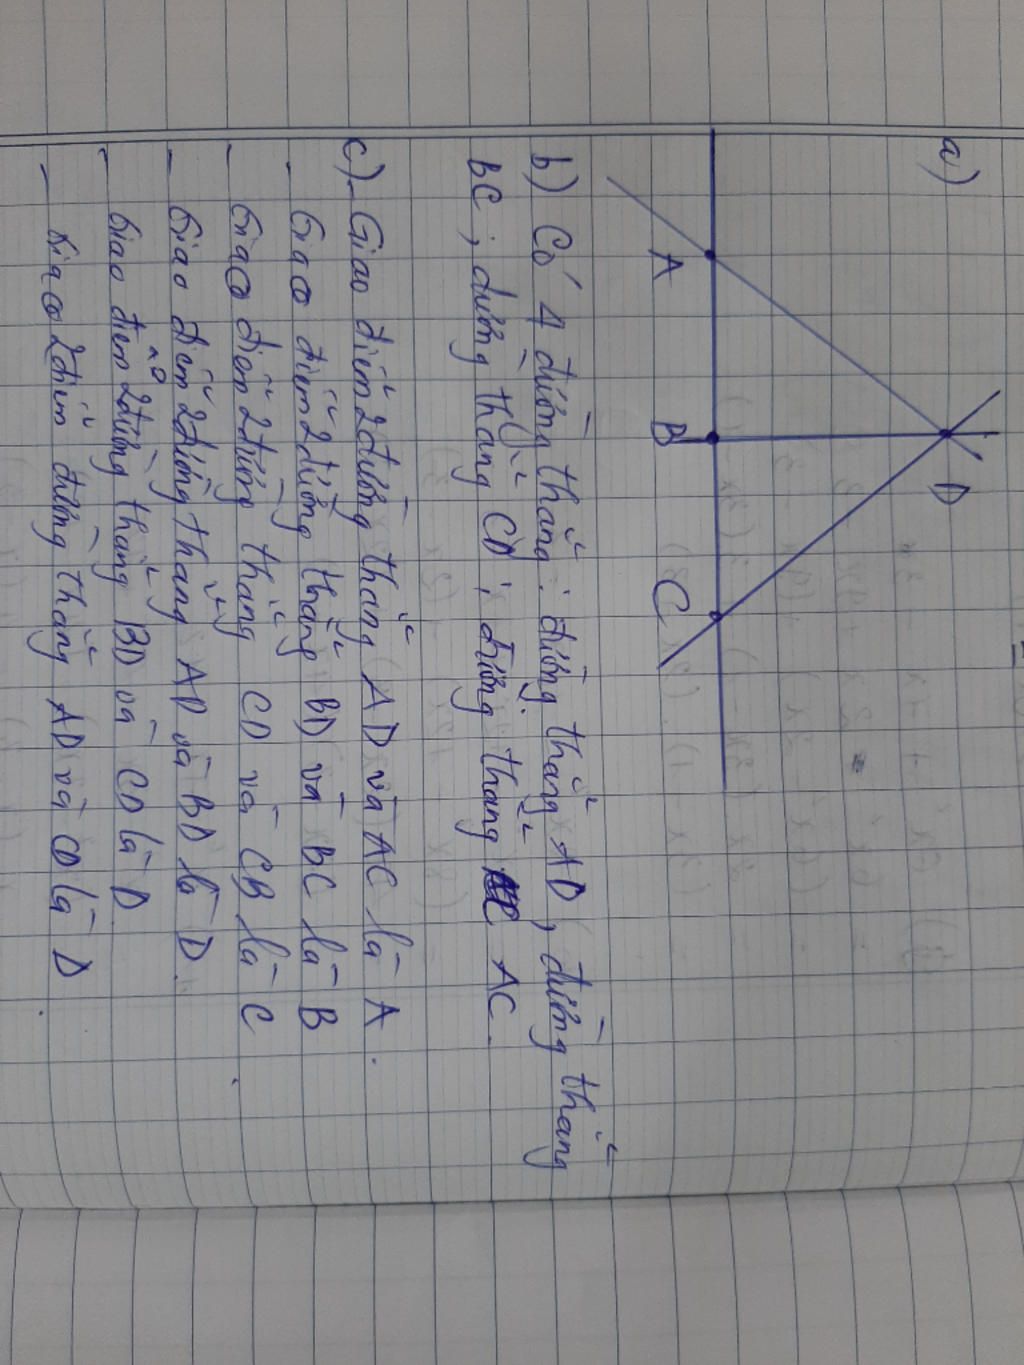 a)
D
A
B
C
b) Có 4 đường thẳng : đường thẳng AD, đường thẳng
BC ; đường thẳng CD ; đường thẳng AC
c) - Giao điểm 2 đường thẳng AD và AC là A.
- Giao điểm 2 đường thẳng BD và BC là B
- Giao điểm 2 đường thẳng CD và CB là C.
- Giao điểm 2 đường thẳng AD và BD là D.
- Giao điểm 2 đường thẳng BD và CD là D
- Giao 2 điểm đường thẳng AD và CD là D.